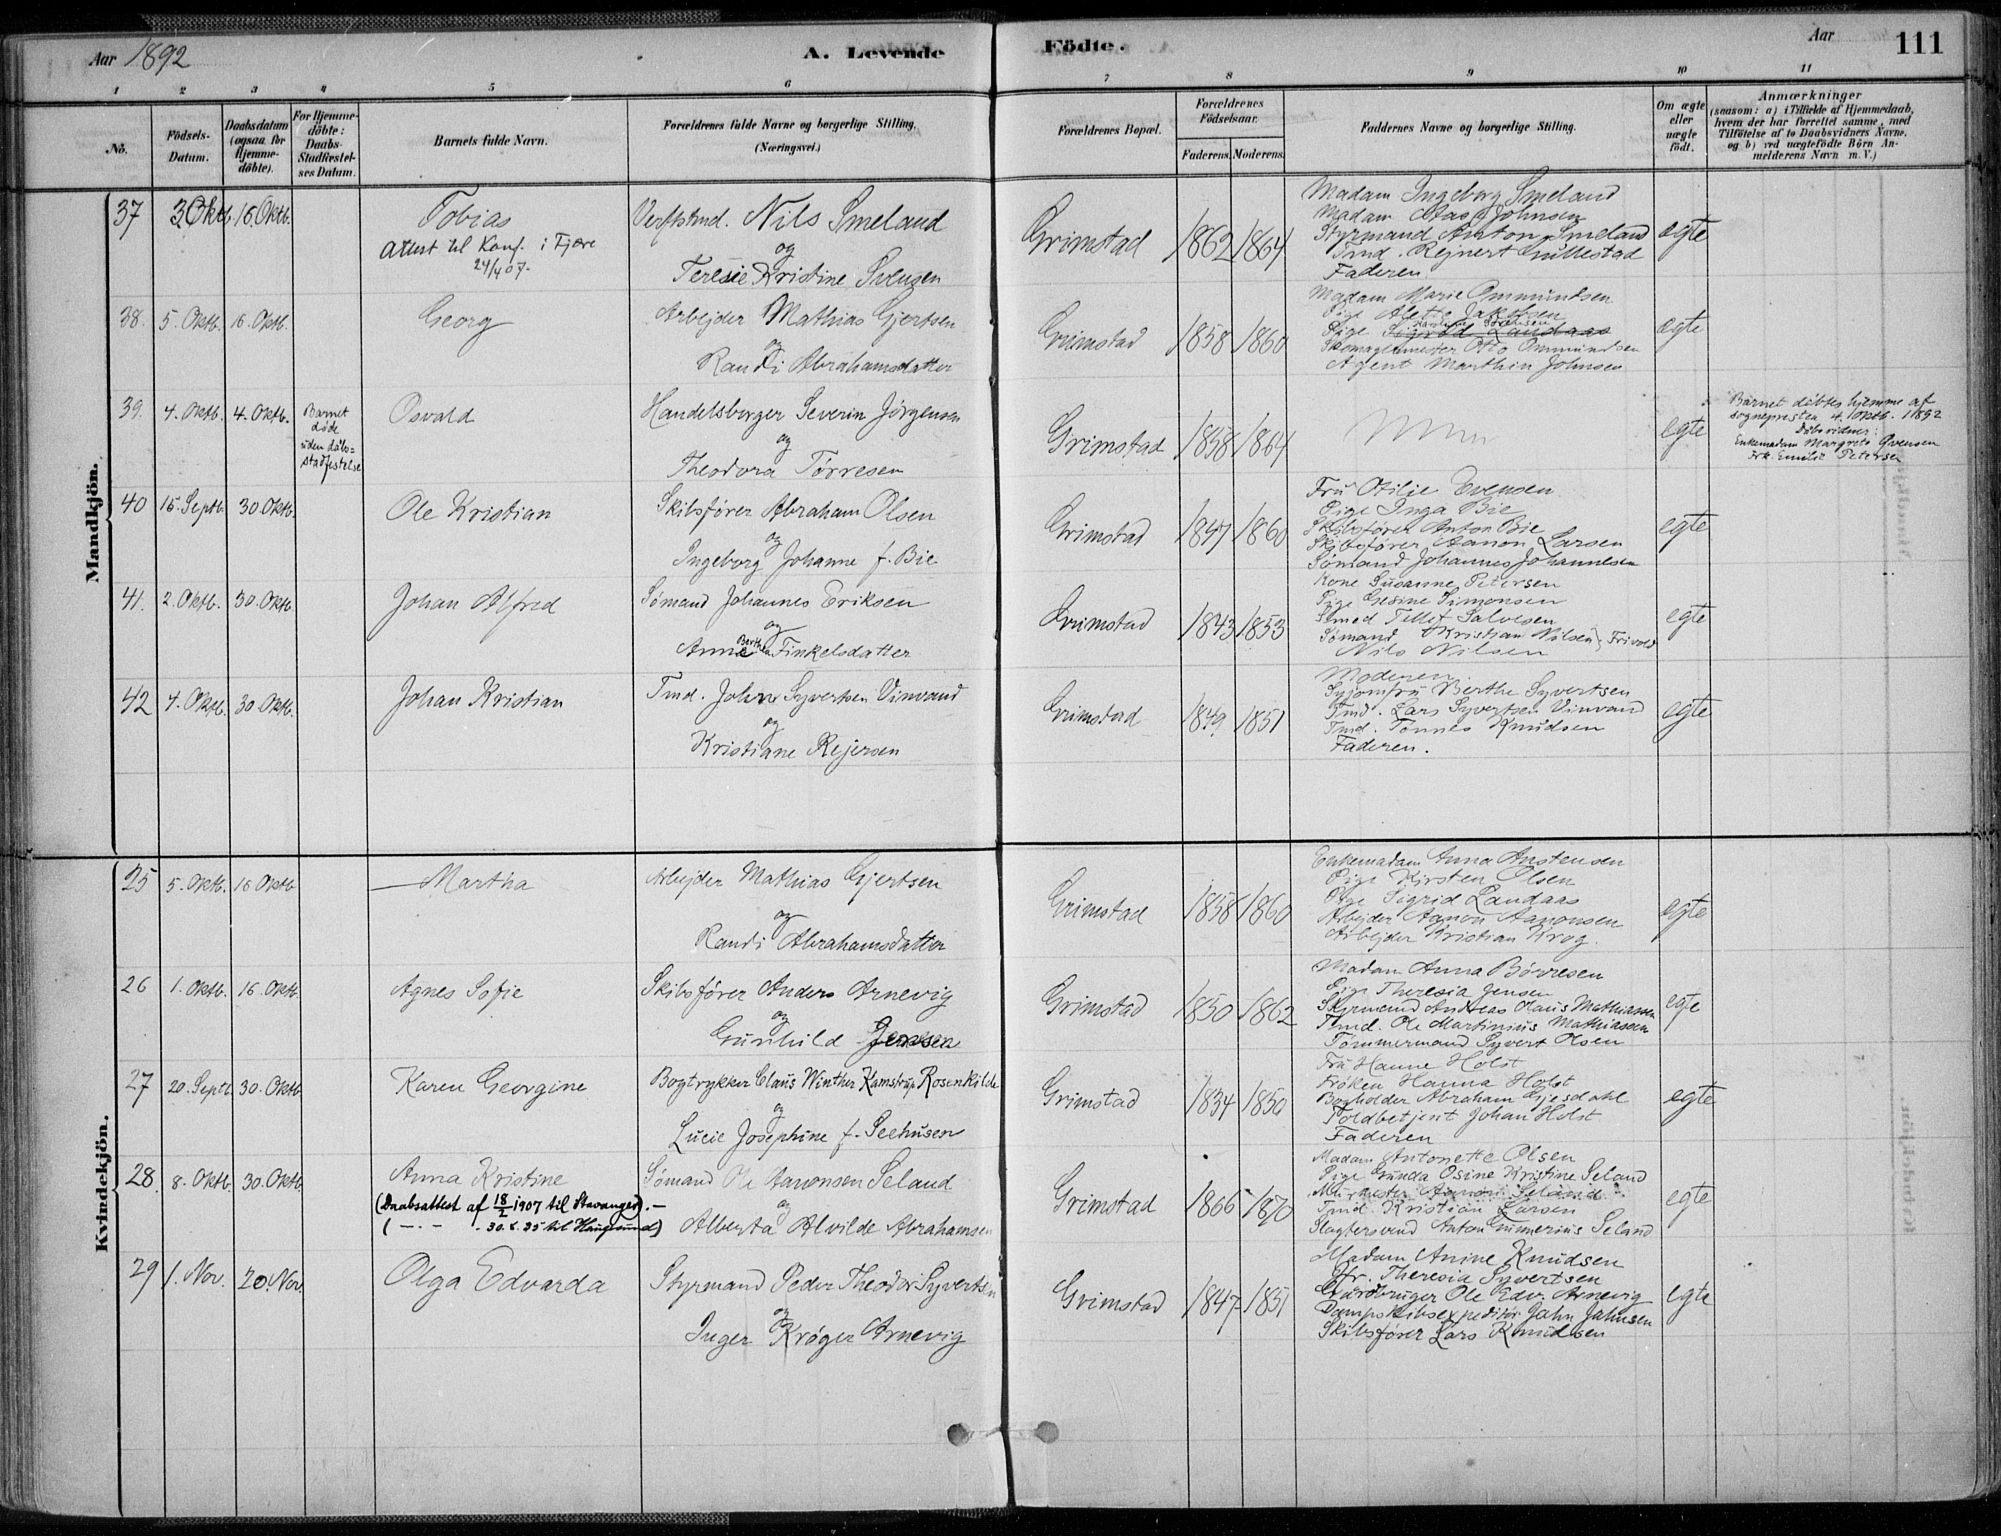 Aar 1892
A. Levende
Födte.
Aar
111
1 2 3 4 5 6 7 8 9 10 11
No.
Födsels-
Datum.
Daabsdatum
(ogsaa for
Hjemme-
döbte).
For Hjemme-
döbte:
Daabs-
Stadfæstel-
ses Datum.
Barnets fulde Navn.
Forældrenes fulde Navne og borgerlige Stilling.
(Næringsvei.)
Forældrenes Bopæl.
Forældrenes
Födselsaar.
Faderens. Moderens.
Faddernes Navne og borgerlige Stilling.
Om ægte
eller
uægte
födt.
Anmærkninger
(saasom: a) i Tilfælde af Hjemmedaab,
hvem der har forrettet samme, med
Tilföielse af to Daabsvidners Navne.
og b) ved uægtefödte Börn An-
melderens Navn m. V.)
Mandkjön.
37 3 Oktb. 16. Oktb. Tobias
Attest til Konf. i Fjære
24/4 07.
Verftstmd. Nils Smeland
og
Teresie Kristine Svensen
Grimstad 1862 1864
Madam Ingeborg Smeland
Madam Aase Johnsen
Styrmand Anton Smeland
Tmd. Rejnert Gullestad
Faderen.
ægte
38. 5. Oktb. 16. Oktb. Georg
Arbejder Mathias Gjertsen
og
Randi Abrahamsdatter
Grimstad 1858 1860
Madam Marie Ommundsen
Pige Alette Jakobsen
Pige Sigrid Landaas
Skomagermester Otto Ommundsen
Agent Marthin Johnsen
ægte
39. 4. Oktb. 4. Oktb. Barnet
døde
uden dåbs-
stadfæstelse
Osvald
Handelsborger Severin Jørgensen
og
Theodora Tørresen
Grimstad 1858 1864
egte
Barnet døbtes hjemme af
sognepresten 4. Oktb. 1892
Dåbsvidner:
Enkemadam Margrete Ovensen
Frk. Emilie Petersen
40 15. Septb. 30. Oktb. Ole Kristian
Skibsfører Abraham Olsen
og
Ingeborg Johanne f. Bie
Grimstad 1847 1860
Fru Otilie Evensen
Pige Inga Bie
Skibsfører Anton Bie
Skibsfører Aanon Larsen
Sømand Johannes Johannesen
egte
41. 2. Oktb. 30. Oktb. Johan Alfred
Sømand Johannes Eriksen
og
Anne Berthea Finkelsdatter
Grimstad 1843 1853
Kone Susanne Petersen
Pige Gesine Simonsen
Smed Tellef Salvesen
Sømand Kristian Nilsen } Frivold
Nils Nilsen
egte
42 4. Oktb. 30. Oktb. Johan Kristian
Tmd. John Syvertsen Vinvand
og
Kristiane Rejersen
Grimstad 1849 1851
Moderen.
Syjomfru Berthe Syvertsen
Tmd. Lars Syvertsen Vinvand
Tmd. Tønnes Knudsen
Faderen.
egte
Kvindekjön.
25 5. Oktb. 16 Oktb Martha
Arbejder Mathias Gjertsen
og
Randi Abrahamsdatter
Grimstad 1858 1860
Enkemadam Anna Anstensen
Pige Kirsten Olsen
Pige Sigrid Landaas
Arbejder Aanon Aanonsen
Arbejder Kristian Krog.
egte
26 1. Oktb. 16. Oktb Agnes Sofie
Skibsfører Anders Arnevig
og
Gunhild Jensen
Grimstad 1850 1862
Madam Anna Børresen
Pige Theresia Jensen
Styrmand Andreas Olaus Mathiassen
Tmd. Ole Martinius Mathiasen
Tømmermand Syvert Olsen
egte
27 20. Septb. 30. Oktb Karen Georgine
Bogtrykker Claus Winther Kamstrup Rosenkilde
og
Lucie Josephine f. Seehusen
Grimstad 1834 1850
Fru Hanne Holst
Frøken Hanna Holst
Bogholder Abraham Gjesdahl
Toldbetjent Johan Holst
Faderen
egte
28. 8. Oktb. 30. Oktb Anna Kristine
(Daabsattest af 18/2 1907 til Stavanger). —
( — . — - 30.8.35 til Haugesund)
Sømand Ole Aanonsen Seland
og
Alberta Alvilde Abrahamsen
Grimstad 1866 1870
Madam Antonette Olsen
Pige Gunda Osine Kristine Seland
Murmester Aanon Seland
Tmd. Kristian Larsen
Slagtersvend Anton Gunnerius Seland
egte
29 1. Nov. 20. Nov. Olga Edvarda
Styrmand Peder Theodor Syvertsen
og
Inger Krøger Arnevig
Grimstad 1847 1851
Madam Anine Knudsen
Jfr. Theresia Syvertsen
Gårdbruger Ole Edv. Arnevig
Dampskibsexpeditør Jahn Jahnsen
Skibsfører Lars Knudsen
egte